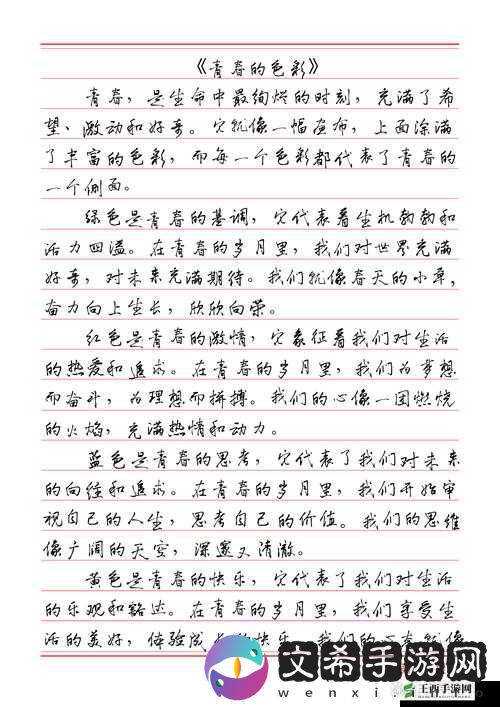 《青春的色彩》
青春，是生命中最绚烂的时刻，充满了希
望、激动和好奇。它就像一幅画布，上面涂满
了丰富的色彩，而每一个色彩都代表了青春的
一个侧面。
绿色是青春的基调，它代表着生机勃勃和
活力四溢。在青春的岁月里，我们对世界充满
好奇，对未来充满期待。我们就像春天的小草，
奋力向上生长，欣欣向荣。
红色是青春的激情，它象征着我们对生活
的热爱和追求。在青春的岁月里，我们为梦想
而奋斗，为理想而拼搏。我们的心像一团燃烧
的火焰，充满热情和动力。
蓝色是青春的思考，它代表了我们对未来
的向往和追求。在青春的岁月里，我们开始审
视自己的人生，思考自己的价值。我们的思维
像广阔的天空，深邃又清澈。
黄色是青春的快乐，它代表了我们对生活
的乐观和豁达。在青春的岁月里，我们享受生
活的美好，体验成长的快乐。我们的心态就像
文希手游网
wenxi
王西手游网